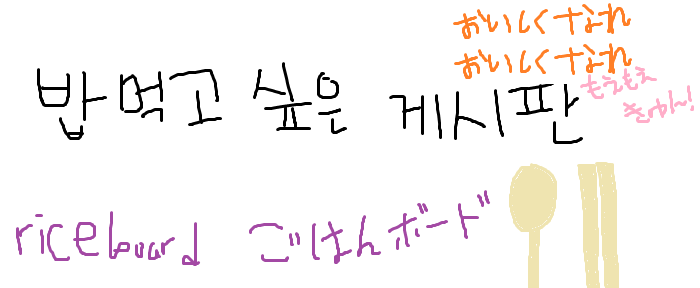 おいしくなれ
おいしくなれ
밥먹고 싶은 게시판
もえもえ
きゅん!
riceboard ごはんボード